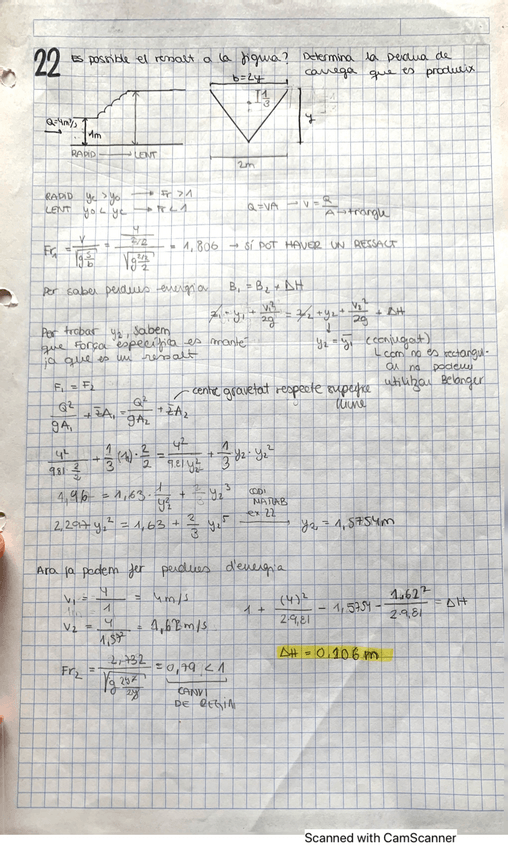 22 Es possible el ressalt a la figura? Determina la perdua de
carrega que es produeix
b=2y
1/3
y
Q=4m³/s
1m
RAPID → LENT
2m
RAPID yc > y0 → Fr > 1
LENT y0 < yc → Fr < 1
Q=VA → V = Q/A → triangle
Fr1 = V/√(g s/b) = (4/(2/2))/√(g (2/2)/2) = 1,806 → SÍ POT HAVER UN RESSALT
Per saber perdues energia B1 = B2 + ΔH
z1 + y1 + V1²/2g = z2 + y2 + V2²/2g + ΔH
Per trobar y2, sabem
que Força específica es manté
ja que es un ressalt
y2 = y1 (conjugat)
com no es rectangu-
lar no podem
utilitzar Belanger
F1 = F2
centre gravetat respecte superficie
lliure
Q²/gA1 + z̄A1 = Q²/gA2 + z̄A2
4²/(9,81 2/2) + 1/3 (1) · 2/2 = 4²/(9,81 y2²) + 1/3 y2 · y2²
1,96 = 1,63 · 1/y2² + 2/3 y2³
CODI
MATLAB
ex 22
2,297 y2² = 1,63 + 2/3 y2⁵ → y2 = 1,5754m
Ara ja podem fer perdues d'energia
V1 = 4/1 = 4m/s
V2 = 4/1,57² = 1,62 m/s
1 + (4)²/2·9,81 − 1,5754 − 1,62²/2·9,81 = ΔH
ΔH = 0,106 m
= 0,79 < 1
CANVI
DE REGIM
Scanned with CamScanner